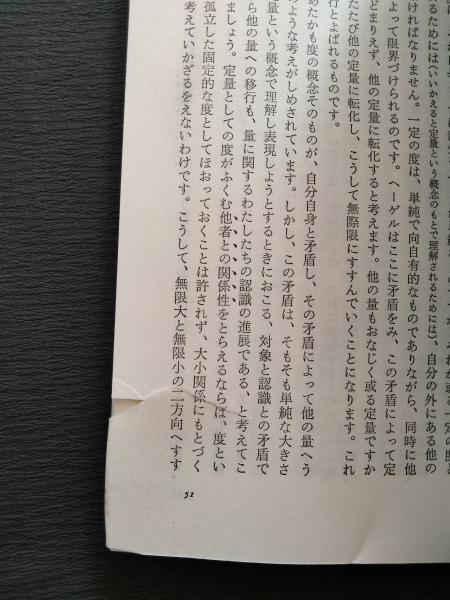 るためには(いいかえると定量という概念のもとで理解されるためには)、自分の外にある他の
ければなりません。一定の度は、単純で向自有的なものでありながら、同時に他
よって限界づけられるのです。ヘーゲルはここに矛盾をみ、この矛盾によって定
どまりえず、他の定量に転化すると考えます。他の量もおなじく或る定量ですか
たたび他の定量に転化し、こうして無際限にすすんでいくことになります。これ
行とよばれるものです。
あたかも度の概念そのものが、自分自身と矛盾し、その矛盾によって他の量へう
のような考えがしめされています。しかし、この矛盾は、そもそも単純な大きさ
量という概念で理解し表現しようとするときにおこる、対象と認識との矛盾で
ら他の量への移行も、量に関するわたしたちの認識の進展である、と考えてこ
ましょう。定量としての度がふくむ他者との関係性をとらえるならば、度とい
孤立した固定的な度としてほおっておくことは許されず、大小関係にもとづく
考えていかざるをえないわけです。こうして、無限大と無限小の二方向へすす
52